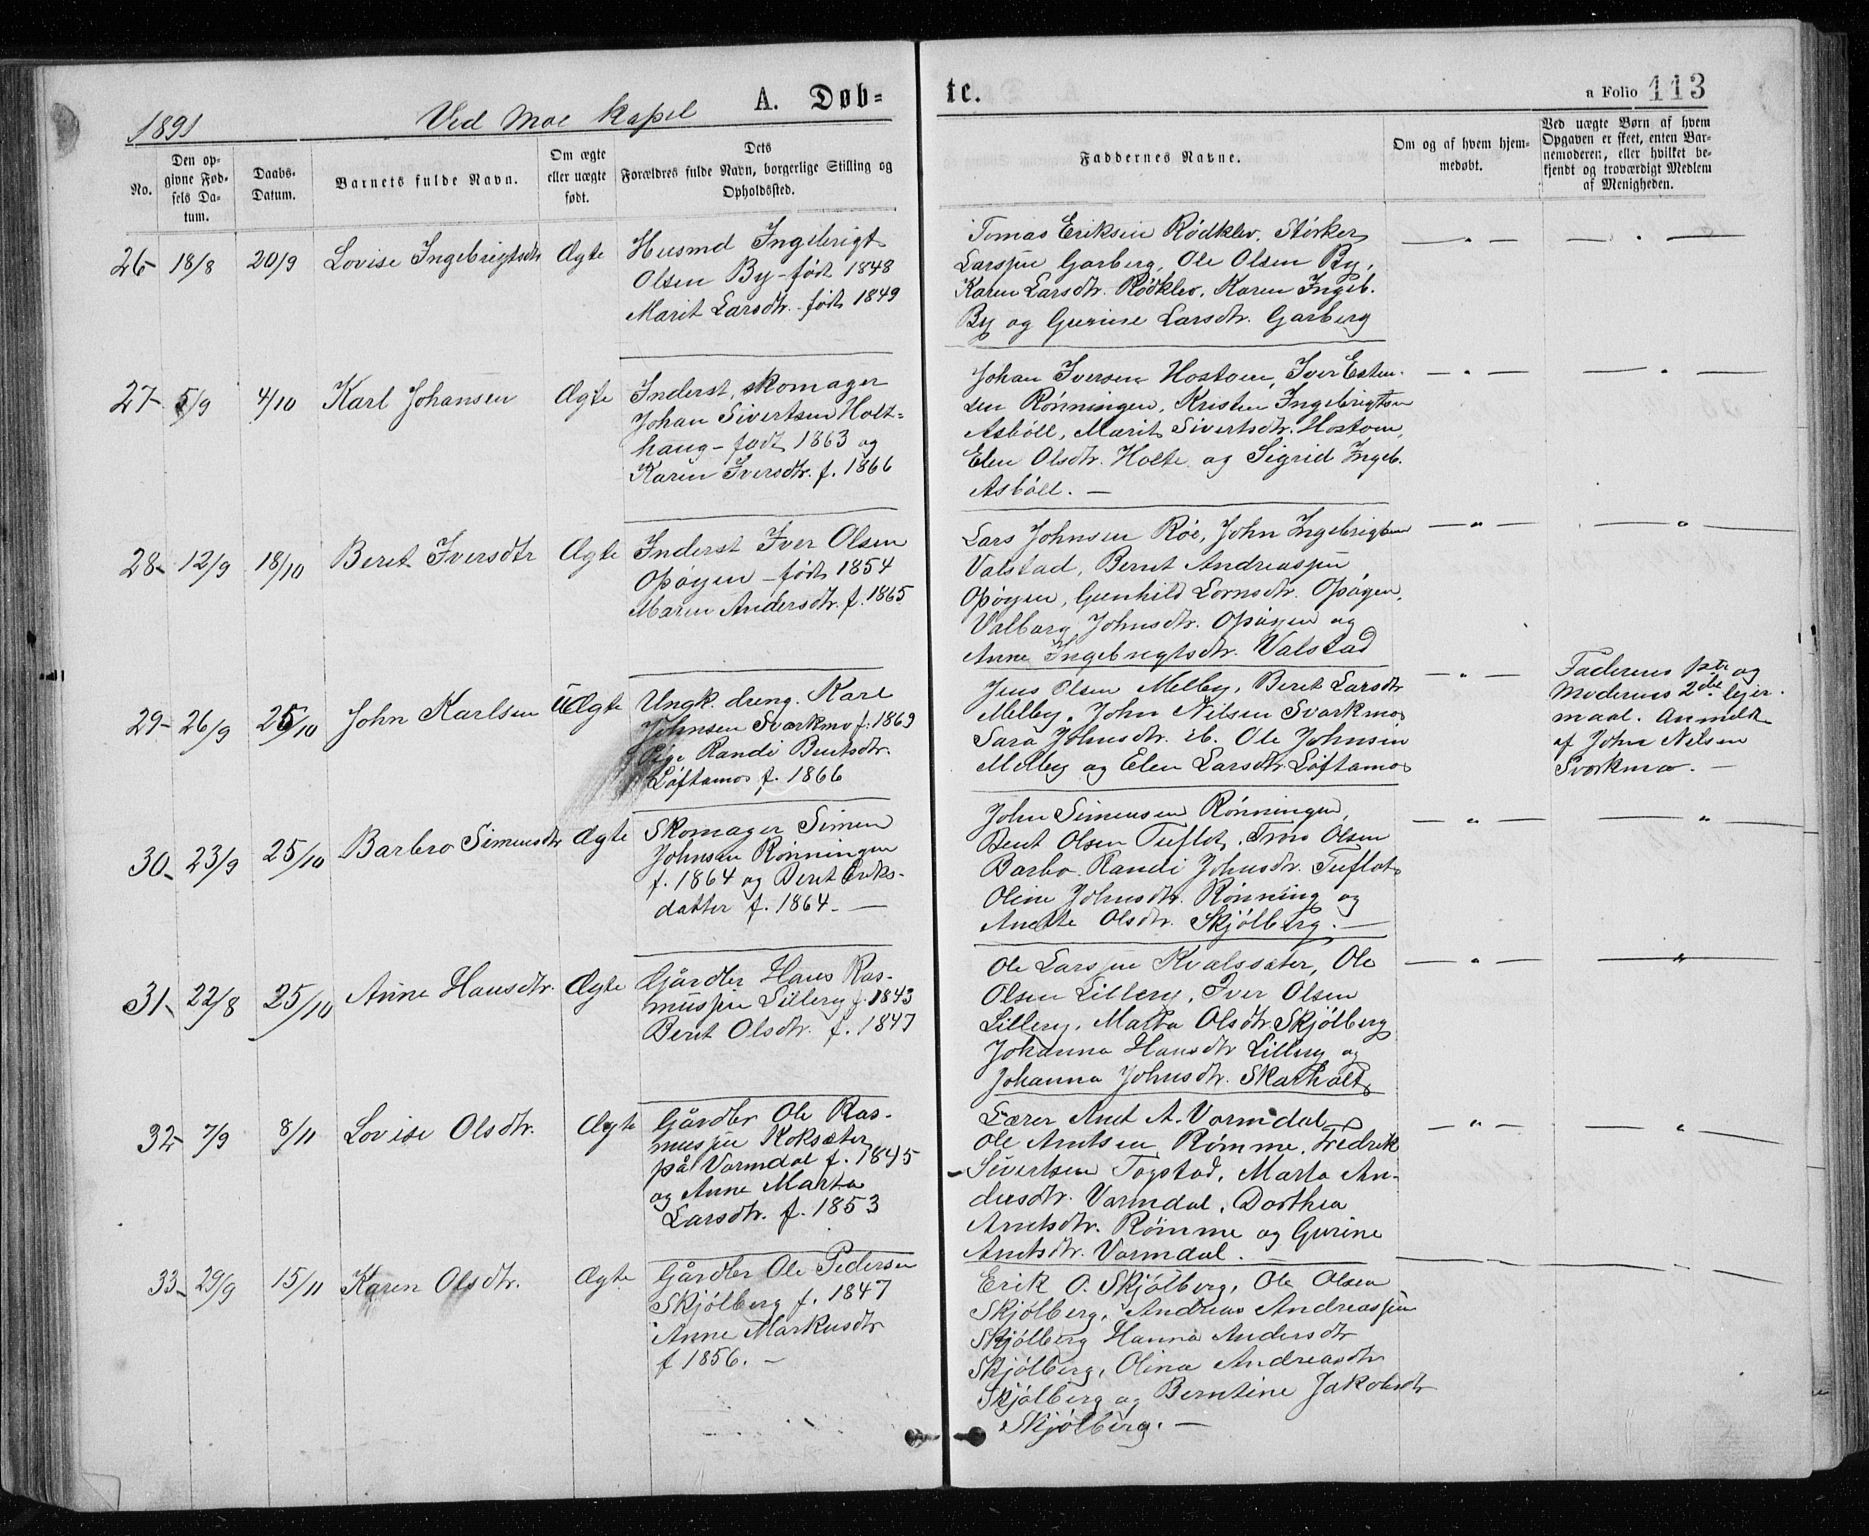 1891
Ved Moe Kapel
A. Døb=
te.
a Folio 113
No.
Den op-
givne Fød-
sels Da-
tum.
Daabs-
Datum.
Barnets fulde Navn.
Om ægte
eller uægte
født.
Dets
Forældres fulde Navn, borgerlige Stilling og
Opholdssted.
Faddernes Navne.
Om og af hvem hjem-
medøbt.
Ved uægte Børn af hvem
Opgaven er skeet, enten Bar-
nemoderen, eller hvilket be-
kjendt og troværdigt Medlem
af Menigheden.
26- 18/8 20/9 Lovise Ingebrigtsdtr Ægte
Husmd Ingebrigt
Olsen By - født 1848
Marit Larsdtr. født 1849
Tomas Eriksen Rødklev, Størker
Larssen Garberg, Ole Olsen By,
Karen Larsdtr. Rødklev, Karen Ingeb.
By og Gurine Larsdtr. Garberg
— " — — " —
27- 5/9 4/10 Karl Johansen Ægte
Inderst, skomager
Johan Sivertsen Holt=
haug - født 1863 og
Karen Iversdtr. f. 1866
Johan Iversen Hostoen, Iver Esten-
sen Rønningen, Kristen Ingebrigtsen
Asbøll, Marit Sivertsdtr. Hostoen,
Elen Olsdtr. Holte og Sigrid Ingeb.
Asbøll. —
— " — — " —
28- 12/9 18/10 Beret Iversdtr Ægte
Inderst Iver Olsen
Opøyen - født 1854
Maren Andersdtr. f. 1865
Lars Johnsen Røe, John Ingebrigtsen
Valstad, Bernt Andreassen
Opøyen, Gunhild Larsdtr. Opøyen,
Valborg Johnsdtr. Opøyen og
Anne Ingebrigtsdtr. Valstad
— " — — " —
29- 26/9 25/10 John Karlsen UÆgte
Ungk. dreng. Karl
Johnsen Svarkmo f. 1869
Pige Randi Bentsdtr.
Løftamo f. 1866
Jens Olsen Melby, Beret Larsdtr
Melby, John Nilsen Svarkmo
Sara Johnsdtr. ib. Ole Johnsen
Melby og Elen Larsdtr. Løftamo
— " —
Faderens 1ste og
Moderens 2det lejer-
maal. Anmeldt
af John Nilsen
Svorkmo. —
30- 23/9 25/10 Barbro Simensdtr Ægte
Skomager Simen
Johnsen Rønningen
f. 1864 og Berit Eriks-
datter f. 1864. —
John Simensen Rønningen,
Bent Olsen Tuflot, Arn Olsen
Barbo, Randi Johnsdtr. Tuflot
Oline Johnsdtr. Rønning og
Anette Olsdtr. Skjølberg. —
— " — — " —
31- 22/8 25/10 Anne Hansdtr. Ægte
Gårdbr Hans Ras-
mussen Lillery f. 1843
Berit Olsdtr. f. 1847
Ole Larssen Kvalssæter, Ole
Olsen Lillery, Iver Olsen
Lillery, Marta Olsdtr. Skjølberg
Johanna Hansdtr Lillery og
Johanna Johnsdtr. Skarholt
— " — — " —
32- 7/9 8/11 Lovise Olsdtr. Ægte
Gårdbr Ole Ras-
mussen Koksæter
på Vormdal f. 1845
og Anne Marta
Larsdtr. f. 1853
Lærer Arnt A. Vormdal
Ole Arntsen Rømme, Fredrik
Sivertsen Togstad, Marta An-
dersdtr. Vormdal, Dorthea
Arntsdtr. Rømme og Gurine
Arntsdtr. Vormdal. —
— " — — " —
33- 29/9 15/11 Karen Olsdtr. Ægte
Gårdbr Ole Pedersen
Skjølberg f. 1847
Anne Markusdtr
f 1856. —
Erik O. Skjølberg, Ole Olsen
Skjølberg, Andreas Andreassen
Skjølberg Hanna Andersdtr
Skjølberg, Olina Andreasdtr
Skjølberg og Berntine Jakobsdtr
Skjølberg. —